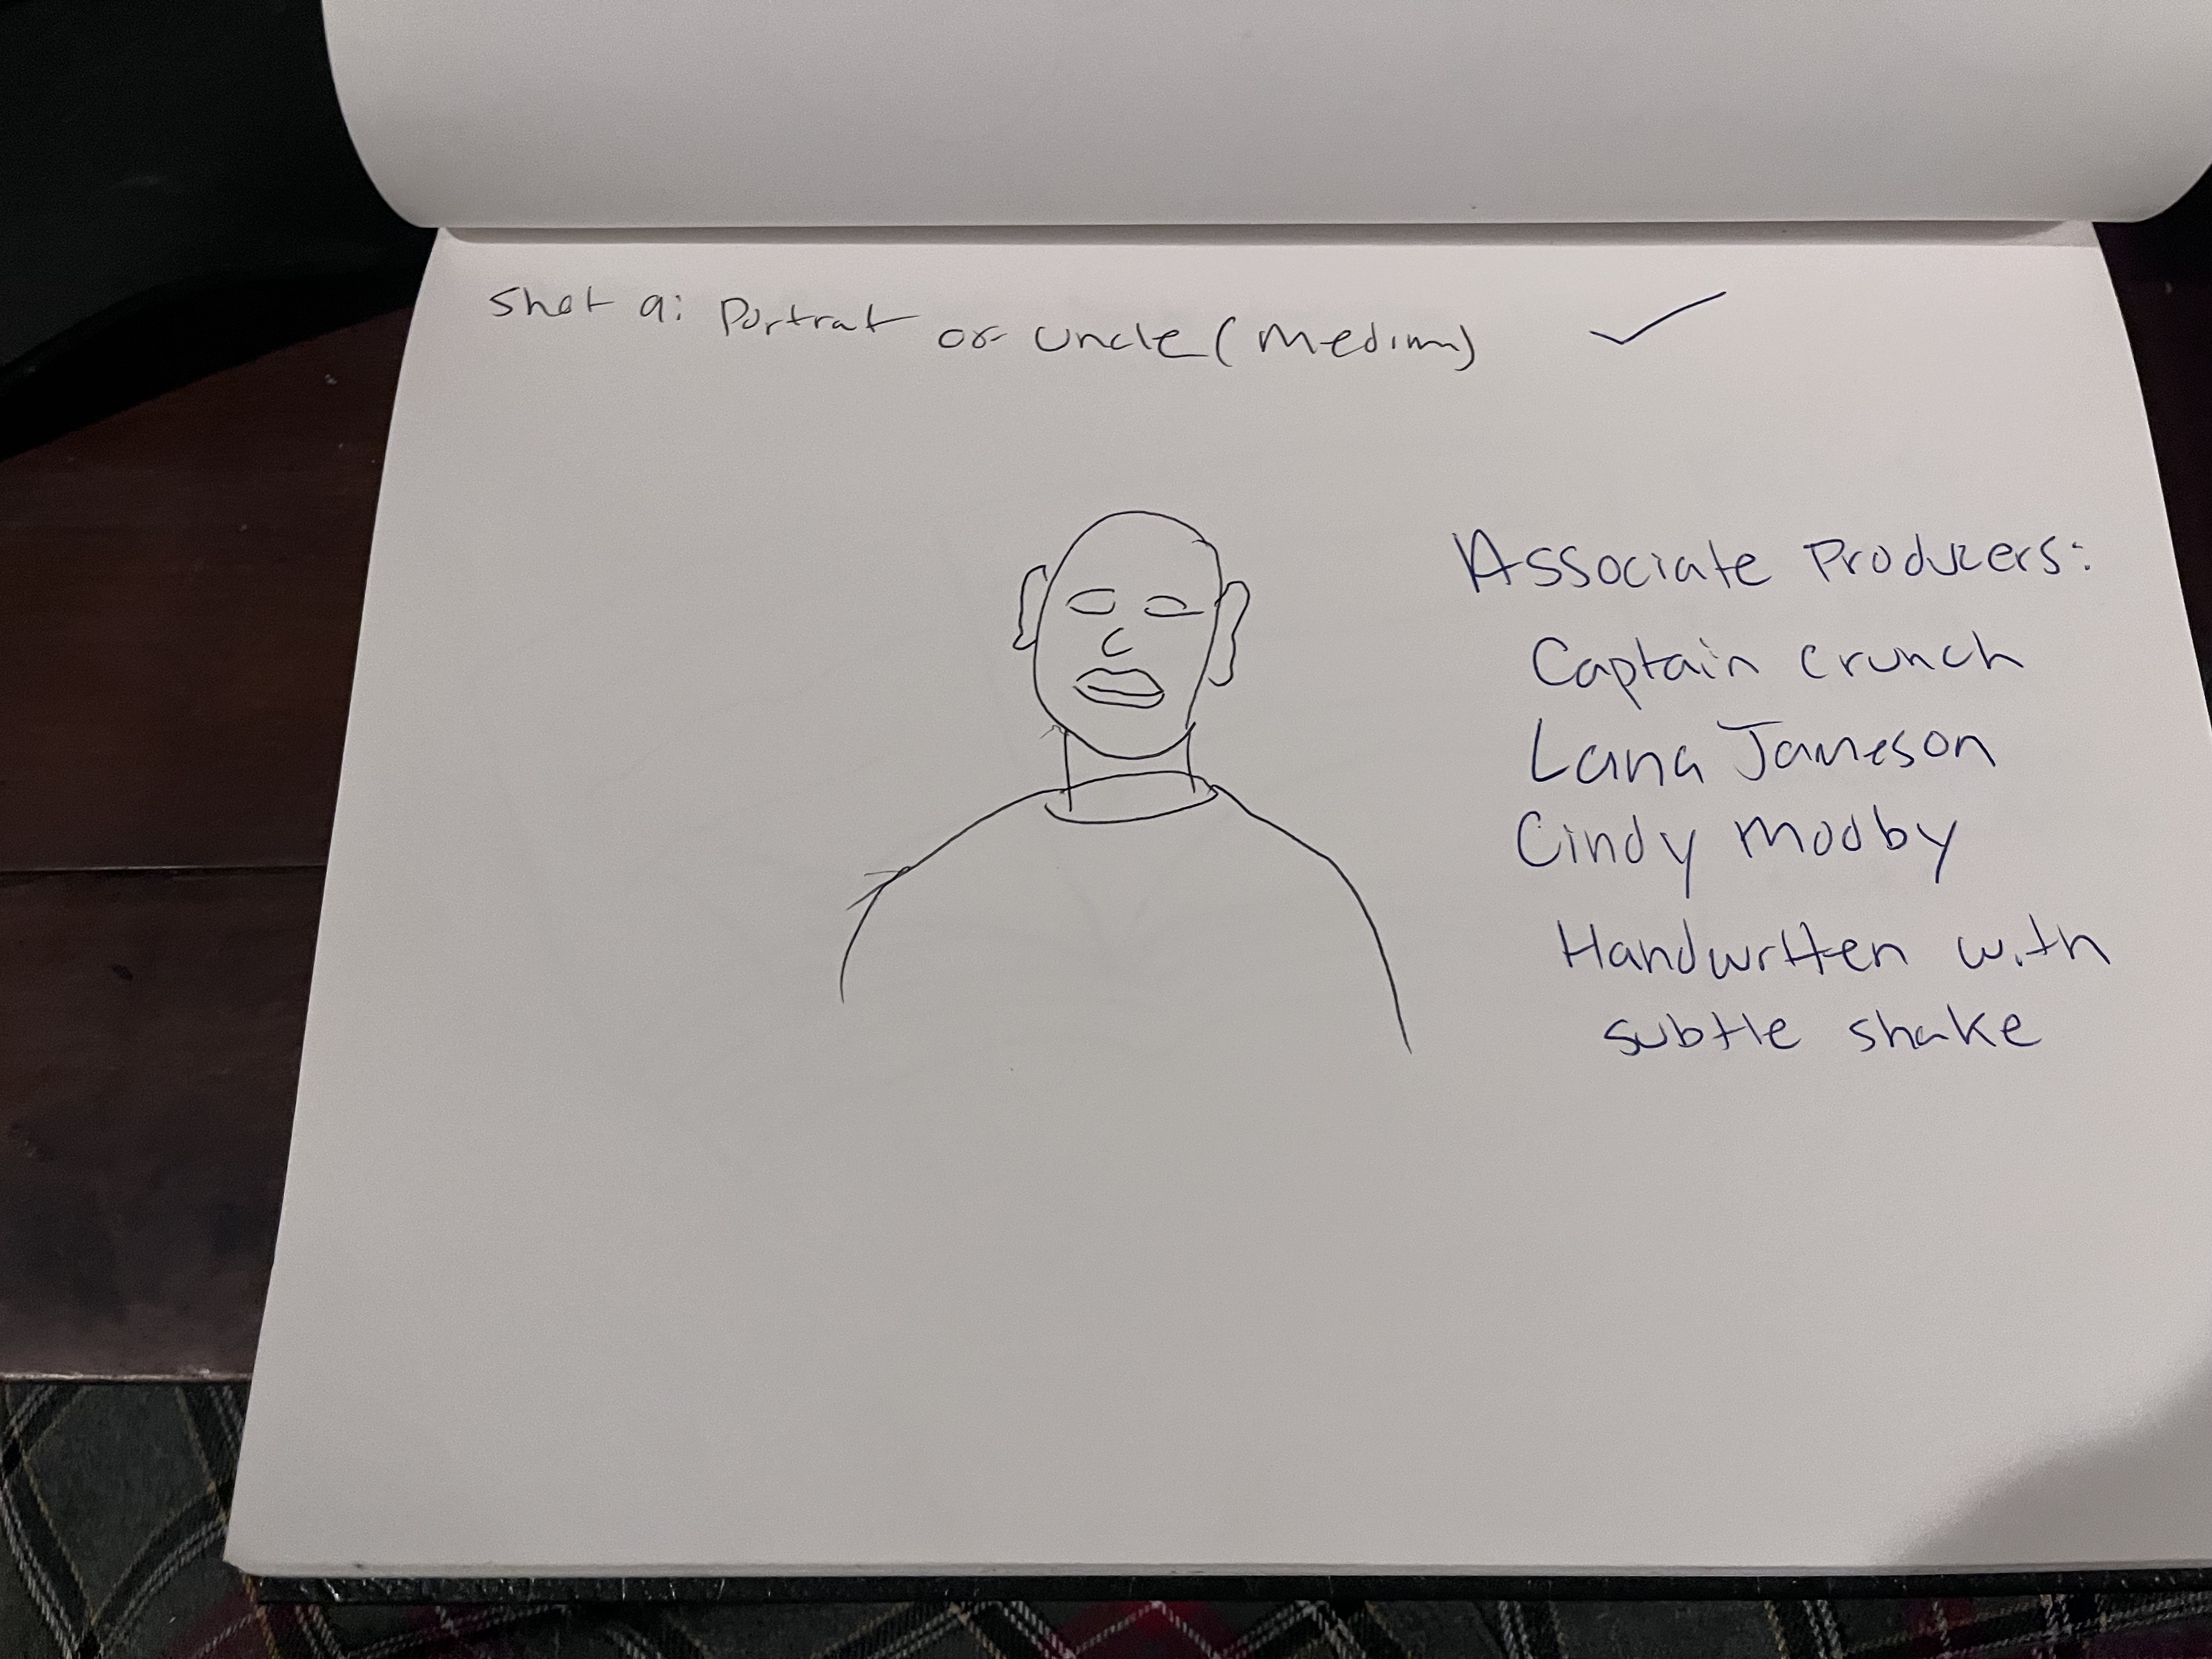 Shot 9: Portrat of Uncle (Medium)
Associate Producers:
Captain Crunch
Lana Jameson
Cindy Modby
Handwritten with
subtle shake